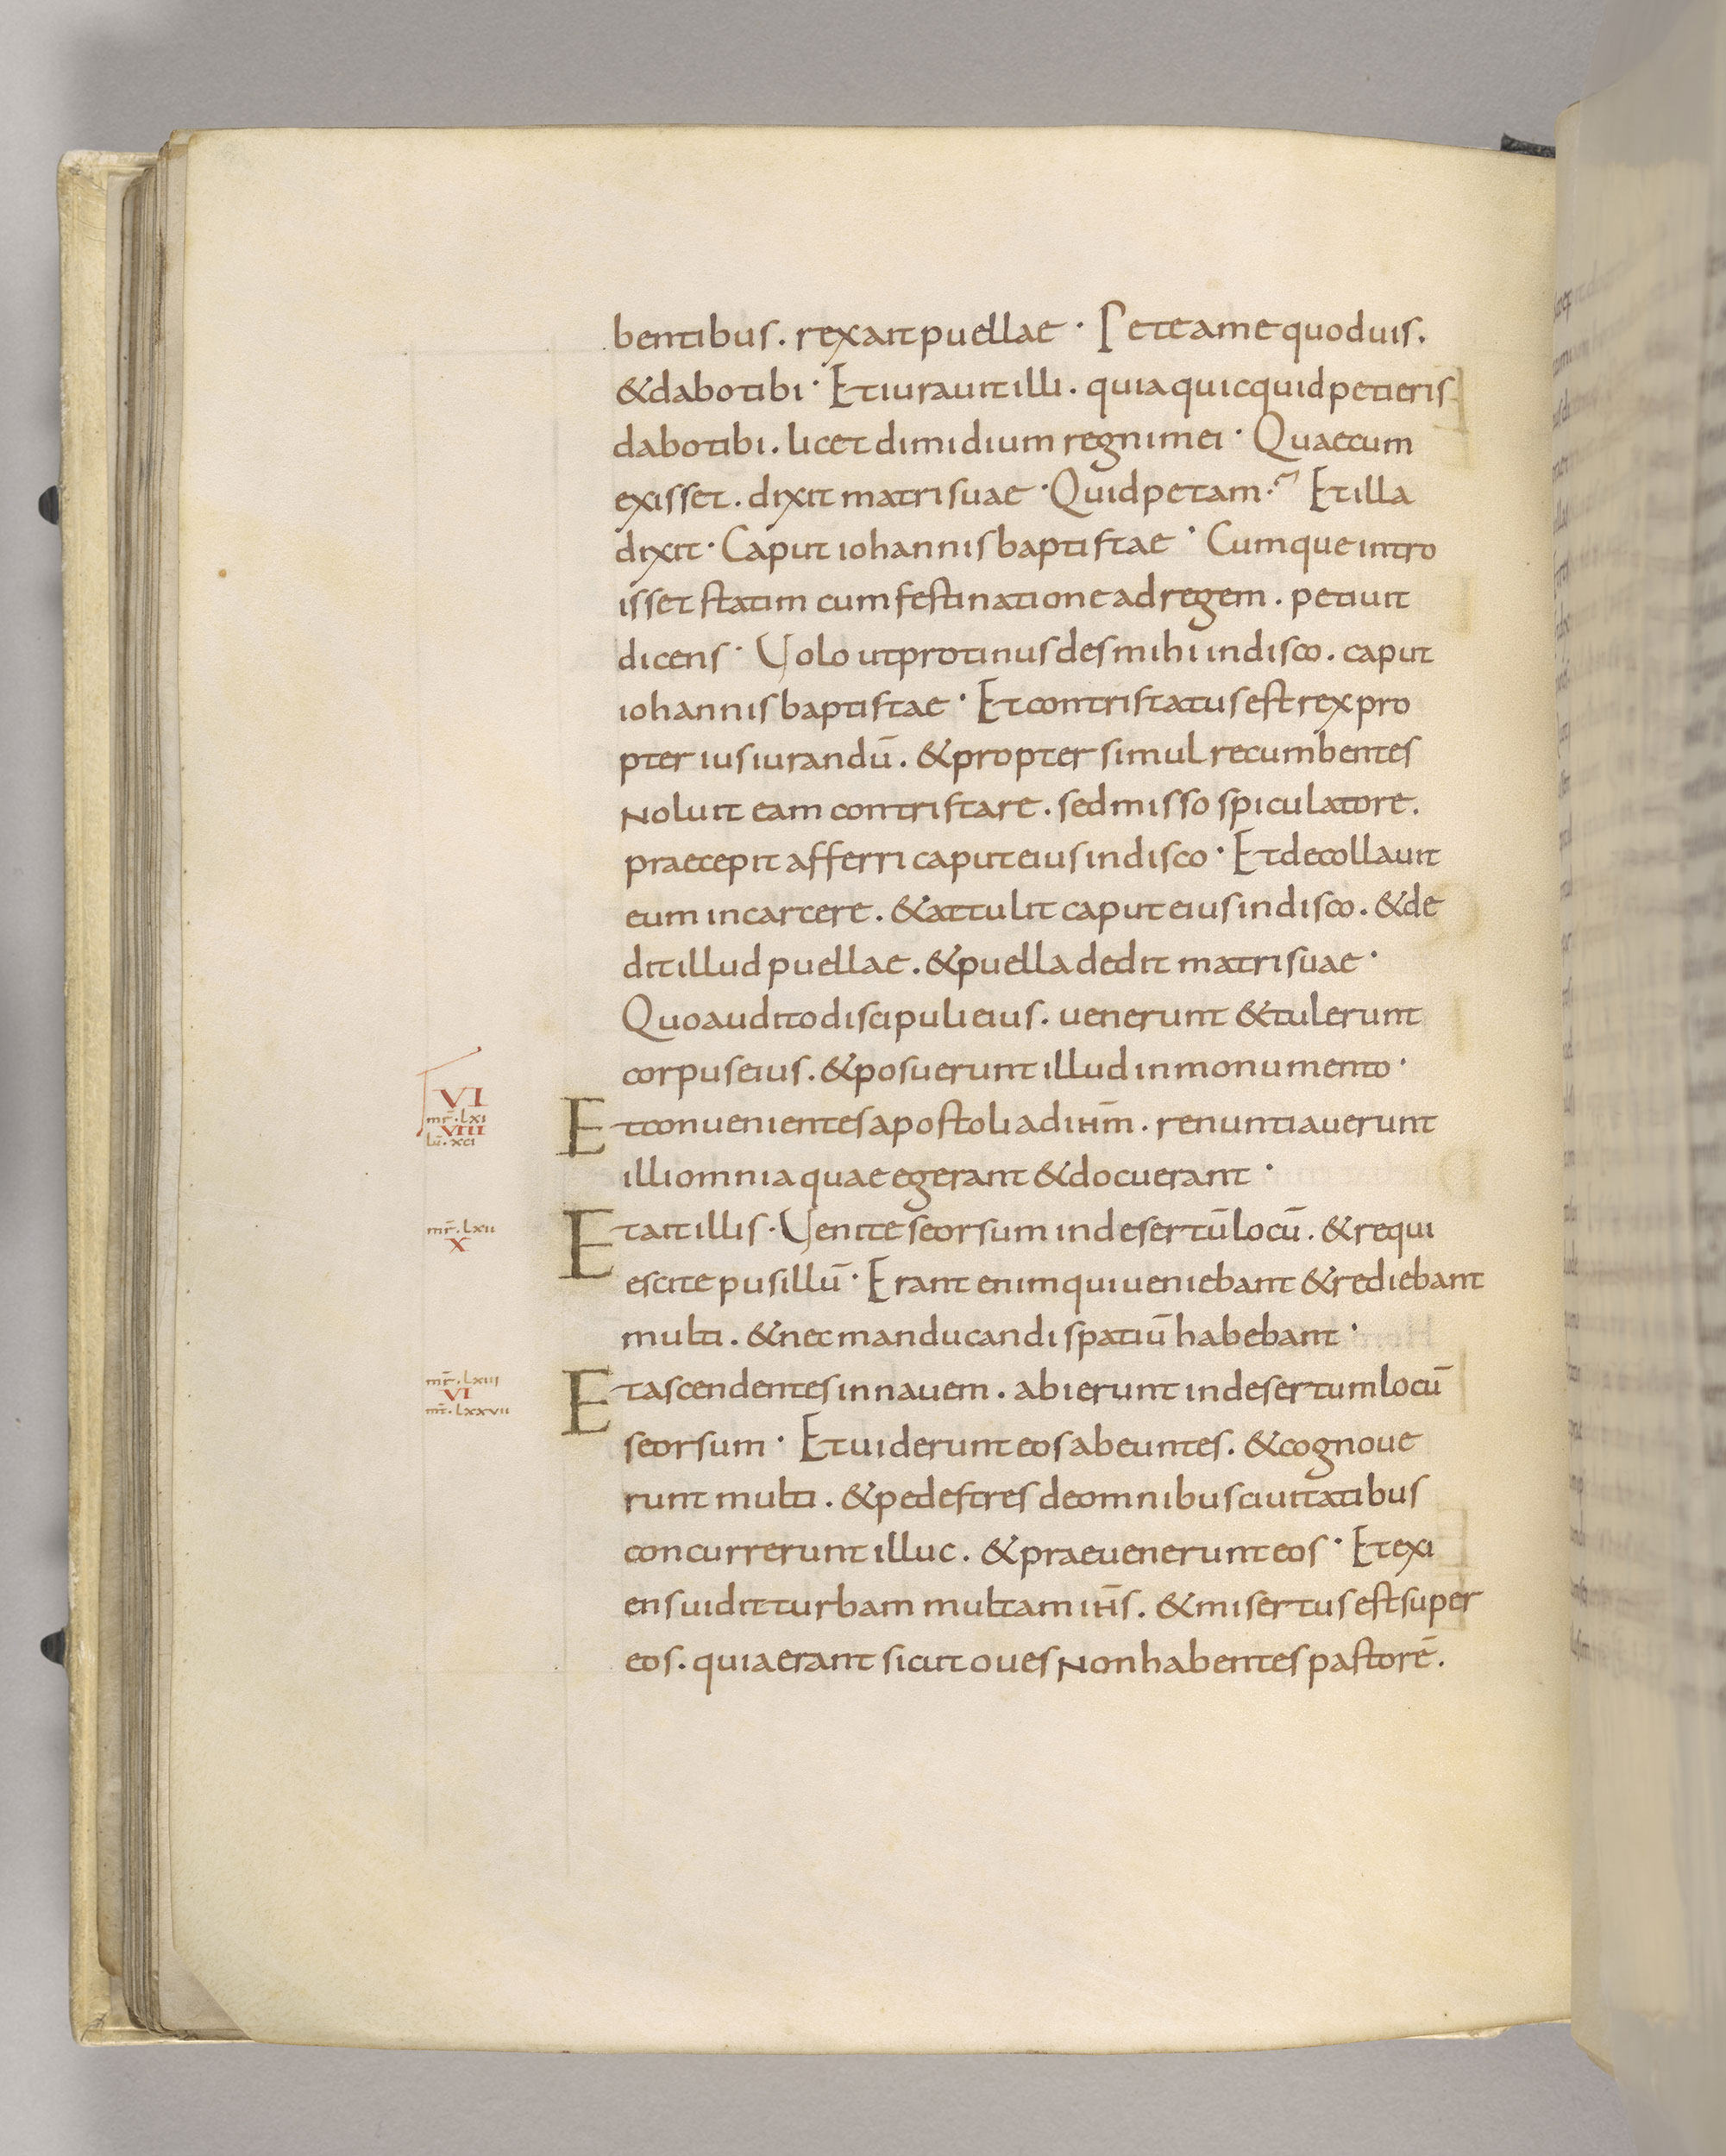 bentibus. rex ait puellae · Pete a me quod uis.
& dabo tibi · Et iurauit illi. quia quicquid petieris
dabo tibi. licet dimidium regni mei · Quae cum
exisset. dixit matri suae · Quid petam ·? Et illa
dixit · Caput iohannis baptistae · Cumque intro
isset statim cum festinatione ad regem. petiuit
dicens · Uolo ut protinus des mihi in disco. caput
iohannis baptistae · Et contristatus est rex pro
pter iusiurandū. & propter simul recumbentes
Noluit eam contristare. sed misso spiculatore.
praecepit afferri caput eius in disco · Et decollauit
eum in carcere. & attulit caput eius in disco. & de
dit illud puellae. & puella dedit matri suae ·
Quo audito discipuli eius. uenerunt & tulerunt
corpus eius. & posuerunt illud in monumento ·
VI
mr̄. LXI
VIII
lū. XCI
Et conuenientes apostoli ad ihm̄. renuntiauerunt
illi omnia quae egerant & docuerant ·
mr̄. LXII
X
Et ait illis · Uenite seorsum in desertū locū. & requi
escite pusillū · Erant enim qui ueniebant & rediebant
multi. & nec manducandi spatiū habebant ·
mr̄. LXIII
VI
mt̄. LXXVII
Et ascendentes in nauem. abierunt in desertum locū
seorsum · Et uiderunt eos abeuntes. & cognoue
runt multi. & pedestres de omnibus ciuitatibus
concurrerunt illuc. & praeuenerunt eos · Et exi
ens uidit turbam multam ih̄s. & misertus est super
eos. quia erant sicut oues Non habentes pastorē.